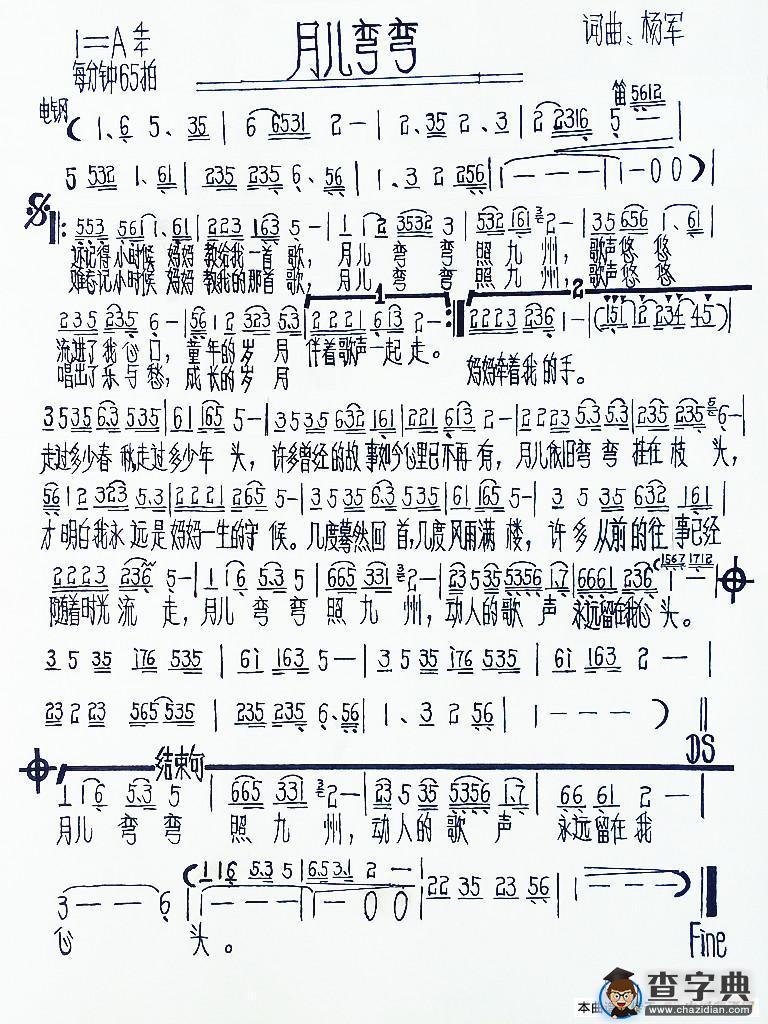 月儿弯弯
词曲：杨军
1=A 4/4
每分钟65拍
电钢
笛 5612
( 1、6 5、35 | 6 6531 2 — | 2、35 2、3 | 2 2316 5 — —
5 532 1、61 | 235 235 6、56 | 1、3 2 256 | 1 — — — | 1 — 0 0 ) |
553 5611、61 | 223 163 5 — | 1 1 2 3532 3 | 532 161 2 — | 35 656 1、61
还记得小时候 妈妈 教给我一首 歌， 月儿 弯 弯 照九州， 歌声悠 悠
难忘记小时候 妈妈 教我的那首 歌， 月儿 弯 弯 照九州， 歌声悠 悠
1 2
235 235 6 — | 56 12 323 5.3 | 2221 613 2 — :| 2223 236 1 — | (151 12 234 45) |
流进了我心门， 童年的岁 月 伴着歌声一起 走。
唱出了乐与愁， 成长的岁 月 妈妈牵着我的手。
3 535 6.3 535 | 61 165 5 — | 3535 35 632 161 | 221 613 2 — | 2223 5.3 5.3 | 235 235 6 — |
走过多少春 秋走过多少年 头， 许多曾经的故 事如今心里已不再 有， 月儿依旧弯 弯 挂在 枝 头，
56 12 323 5.3 | 2221 265 5 — | 3535 6.3 535 | 61 165 5 — | 3 5 35 632 161 |
才明白我永 远是妈妈一生的守 候。 几度蓦然回 首，几度风雨满 楼， 许 多 从前的往 事已经
2223 236 5 — | 1 1 6 5.3 5 | 665 331 2 — | 23 535 5356 1.7 | 6661 236 1 — |
1567 1712
随着时光 流 走， 月儿 弯 弯 照 九 州， 动人的歌 声 永远留在我心头。
3 5 35 176 535 | 61 163 5 — | 3 5 35 176 535 | 61 163 2 — |
23 2 23 565 535 | 235 235 6、56 | 1、3 2 56 | 1 — — — ) ||
DS
结束句
1 1 6 5.3 5 | 665 331 2 — | 23 5 35 5356 1.7 | 66 61 2 — |
月儿 弯 弯 照 九 州， 动人的 歌 声 永远留在我
( 1 1 6 5.3 5 | 6.5 3.1 2 —
3 — — 6 | 1 — — — | 1 — 0 0 | 22 35 23 56 | 1 — — — )
心 头。
Fine
查字典
www.chazidian.com